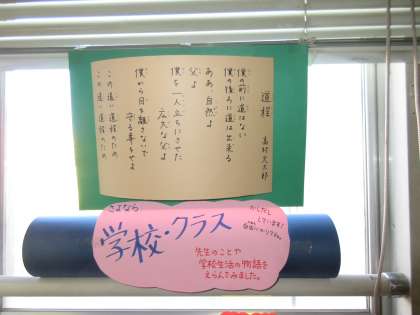 道程
高村光太郎
僕の前に道はない
僕の後ろに道は出来る
ああ、自然よ
父よ
僕を一人立ちにさせた
広大な父よ
僕から目を離さないで
守る事をせよ
この遠い道程のため
この遠い道程のため
さよなら
学校・クラス
かしだし
しています!
先生のことや
学校生活の物語を
えらんでみました。